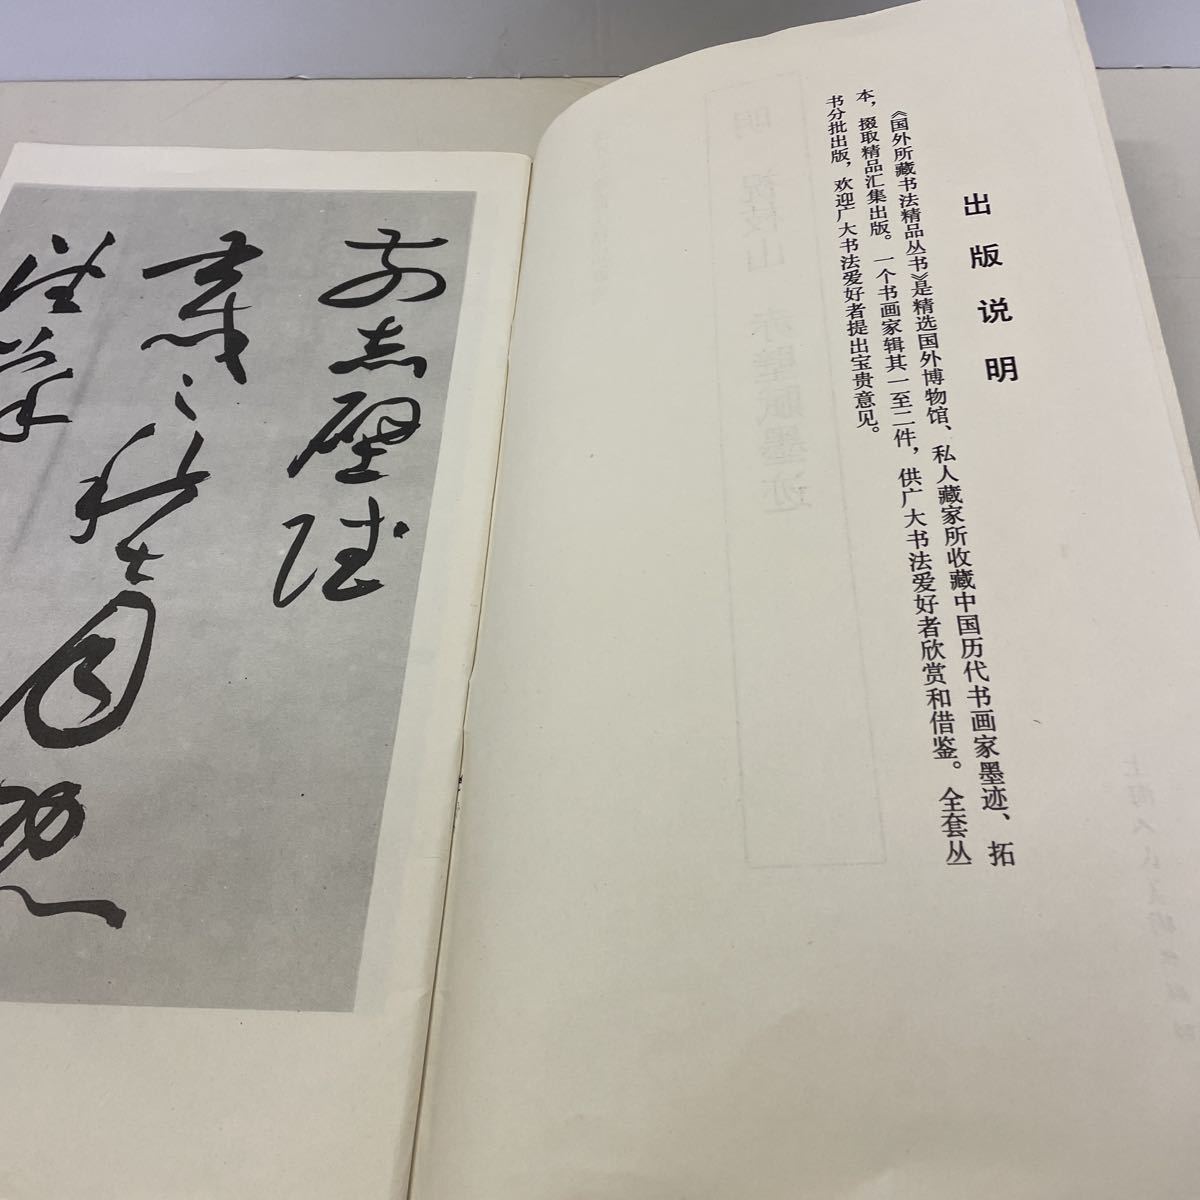 出版说明
《国外所藏书法精品丛书》是精选国外博物馆、私人藏家所收藏中国历代书画家墨迹、拓
本，掇取精品汇集出版。一个书画家辑其一至二件，供广大书法爱好者欣赏和借鉴。全套丛
书分批出版，欢迎广大书法爱好者提出宝贵意见。
前赤壁賦
壬戌之秋七月既
望蘇